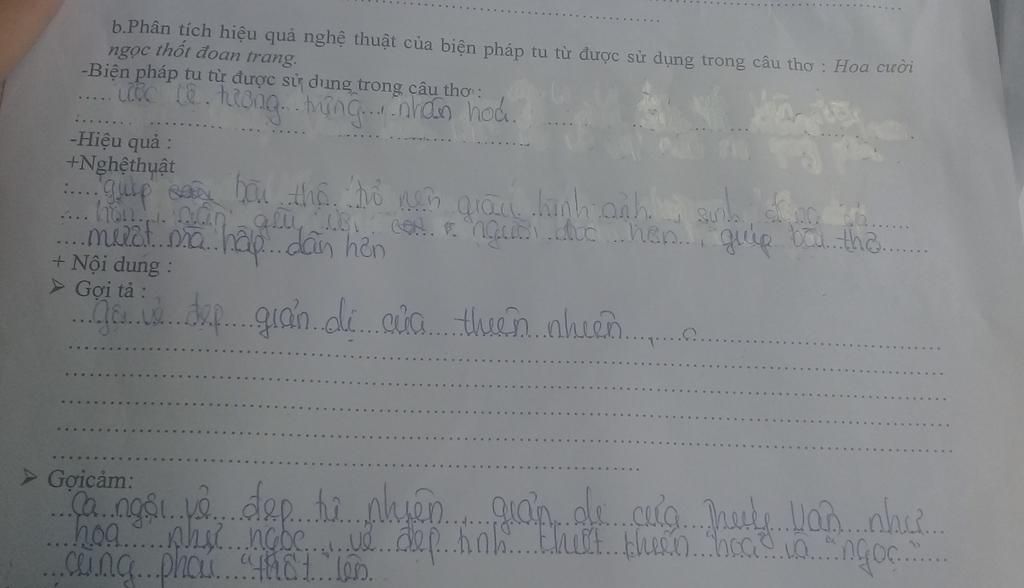 b.Phân tích hiệu quả nghệ thuật của biện pháp tu từ được sử dụng trong câu thơ : Hoa cười
ngọc thốt đoan trang.
-Biện pháp tu từ được sử dụng trong câu thơ :
ước lệ, tượng trưng, nhân hoá.
-Hiệu quả :
+Nghệthuật
giúp bài thơ trở nên giàu hình ảnh, sinh động
hơn, gần gũi với người đọc hơn, giúp bài thơ
mượt mà hấp dẫn hơn
+ Nội dung :
➤ Gợi tả :
Gợi vẻ đẹp giản dị của thiên nhiên,
➤ Gợicảm:
Ca ngợi vẻ đẹp tự nhiên, giản dị của Thuý Vân như
hoa như ngọc, vẻ đẹp tinh khiết khiến "hoa" và "ngọc"
cũng phải "thốt" lên.